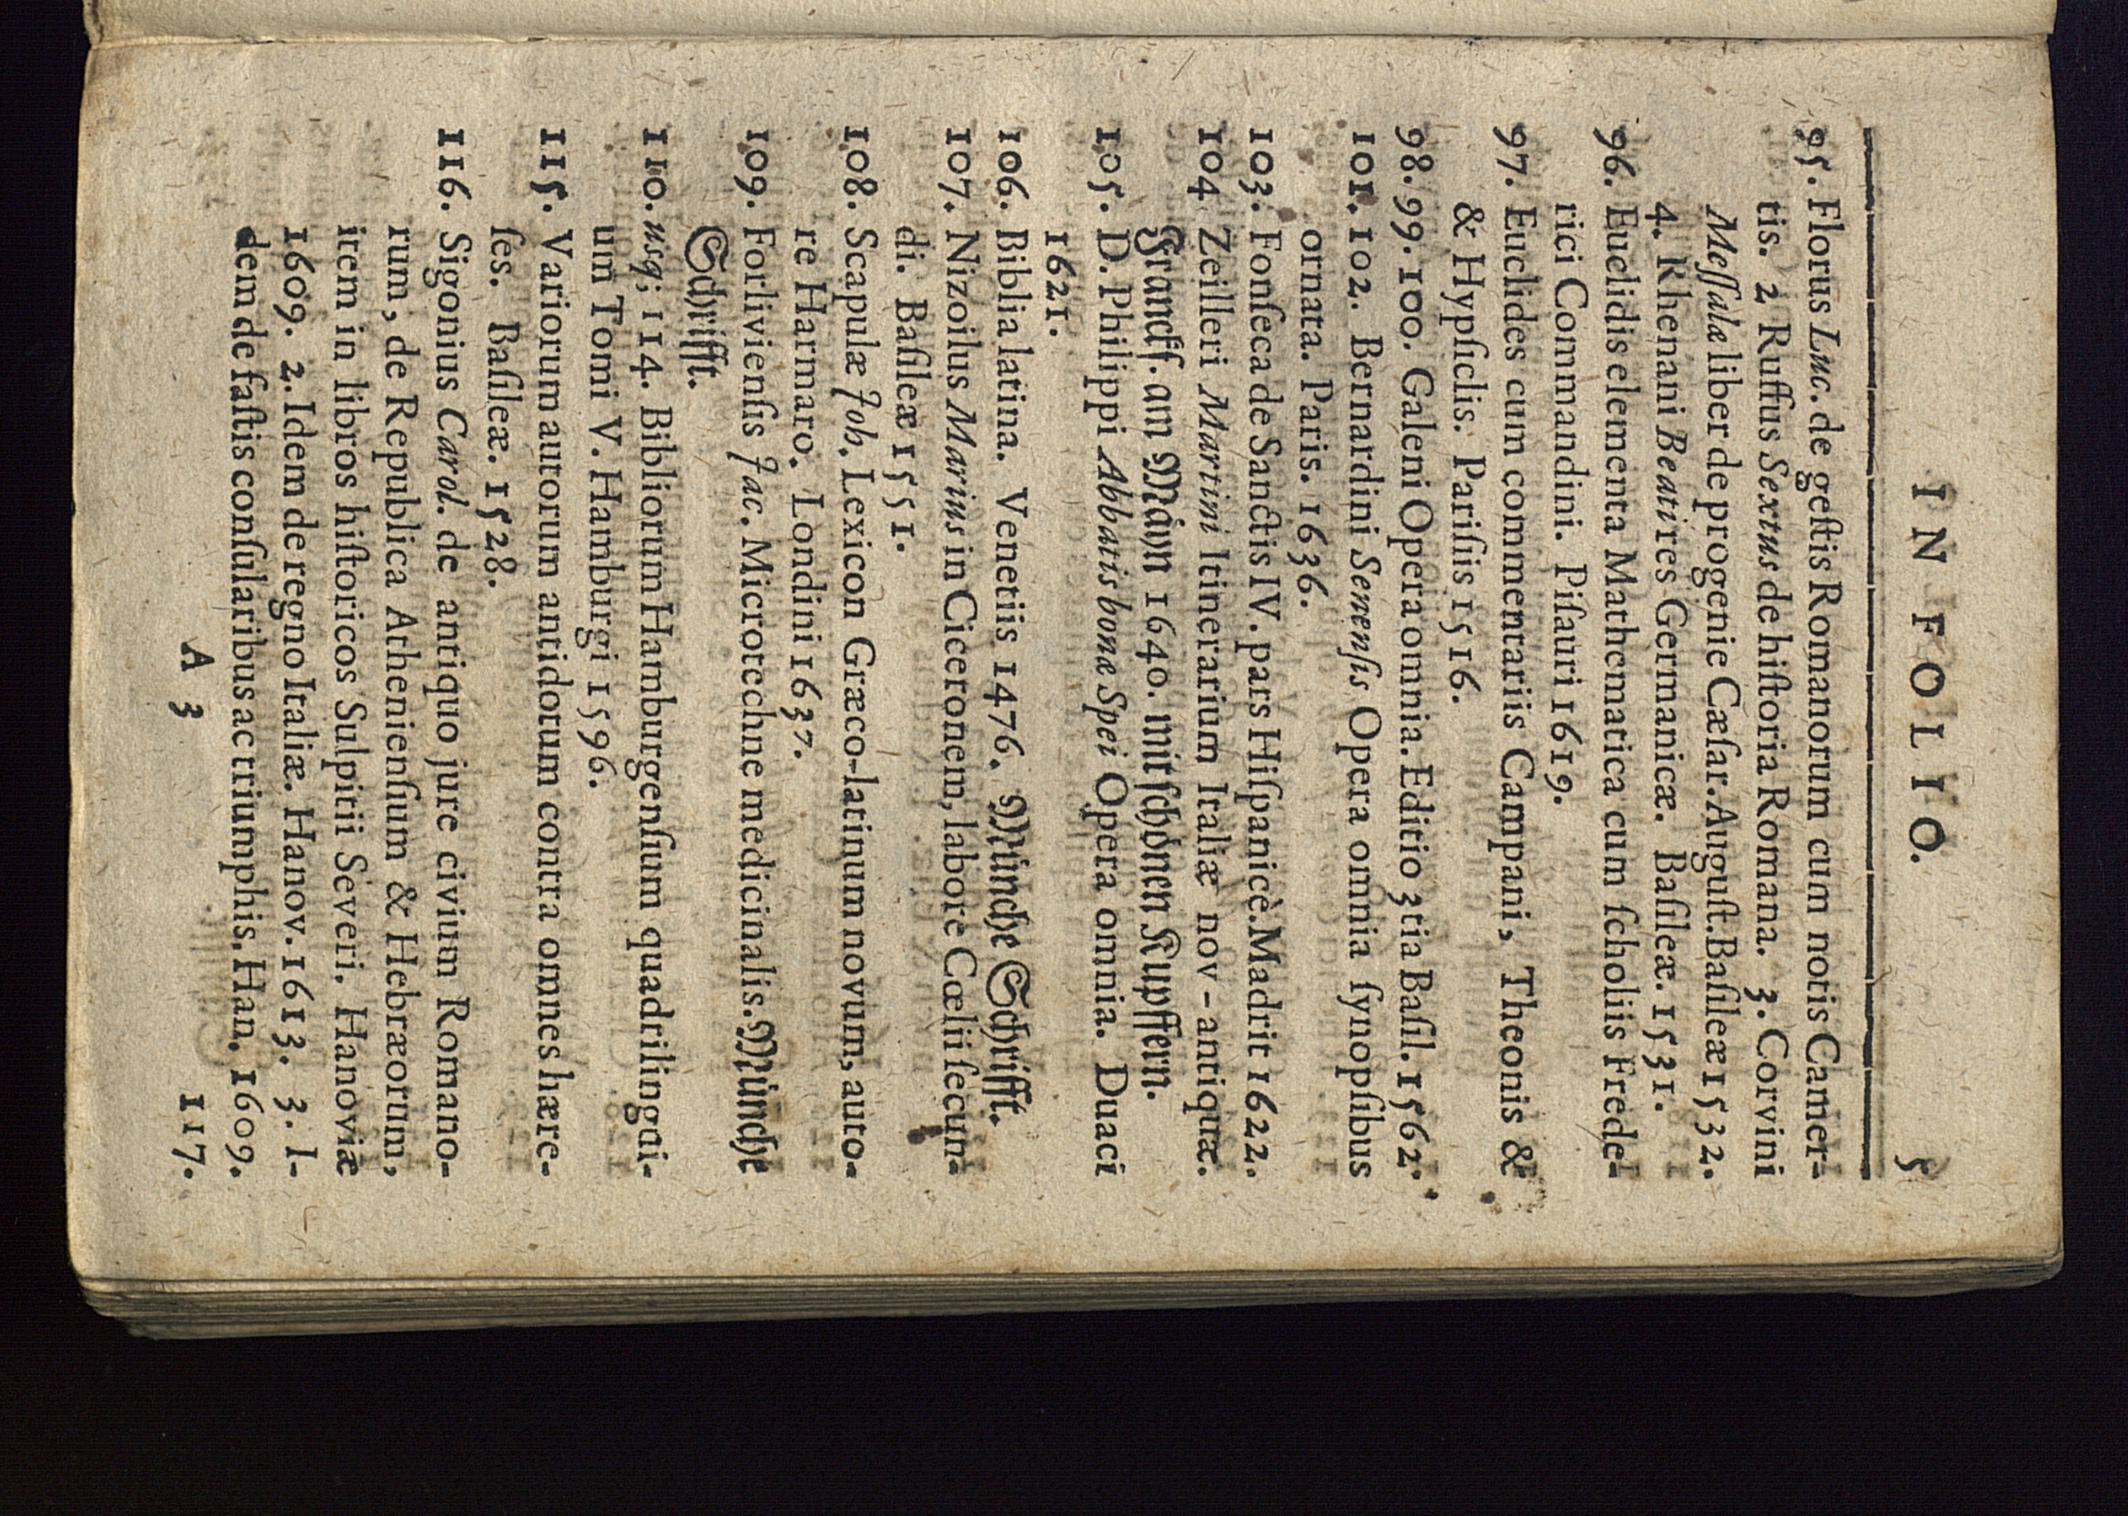 IN FOLIO. 5
95. Florus Luc. de geſtis Romanorum cum notis Camer-
tis. 2 Ruffus Sextus de hiſtoria Romana. 3. Corvini
Meſſalæ liber de progenie Cæſar. Auguſt. Baſileæ 1532.
4. Rhenani Beati res Germanicæ. Baſileæ. 1531.
96. Euclidis elementa Mathematica cum ſcholiis Frede-
rici Commandini. Piſauri 1619.
97. Euclides cum commentariis Campani, Theonis &
& Hypſiclis. Pariſiis 1516.
98. 99. 100. Galeni Opera omnia. Editio 3tia Baſil. 1562.
101. 102. Bernardini Senenſis Opera omnia ſynopſibus
ornata. Paris. 1636.
103. Fonſeca de Sanctis IV. pars Hiſpanicè. Madrit 1622.
104 Zeilleri Martini Itinerarium Italiæ nov-antiquæ.
Franckf. am Mäyn 1640. mit ſchönen Kupffern.
105. D. Philippi Abbatis bonæ Spei Opera omnia. Duaci
1621.
106. Biblia latina. Venetiis 1476. Münche Schrifft.
107. Nizoilus Marius in Ciceronem, labore Cœlii ſecun-
di. Baſileæ 1551.
108. Scapulæ Joh. Lexicon Græco-latinum novum, auto-
re Harmaro. Londini 1637.
109. Forlivienſis Jac. Microtechne medicinalis. Münche
Schrifft.
110. usq; 114. Bibliorum Hamburgenſium quadrilingui-
um Tomi V. Hamburgi 1596.
115. Variorum autorum antidotum contra omnes hære-
ſes. Baſileæ. 1528.
116. Sigonius Carol. de antiquo jure civium Romano-
rum, de Republica Athenienſium & Hebræorum,
item in libros hiſtoricos Sulpitii Severi. Hanoviæ
1609. 2. Idem de regno Italiæ. Hanov. 1613. 3. I-
dem de faſtis conſularibus ac triumphis. Han. 1609.
A 3 117.